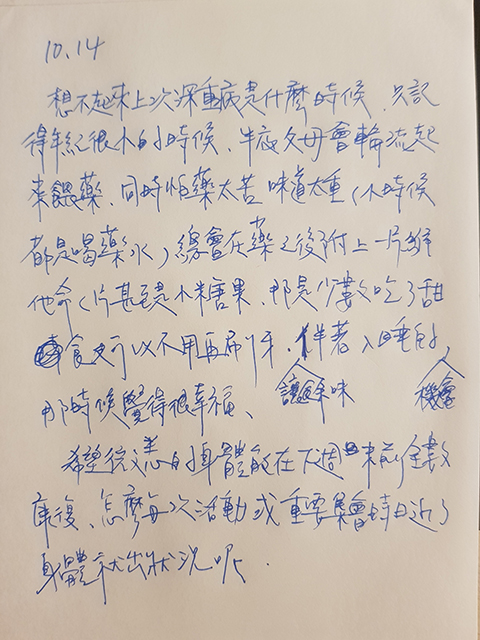 10.14
想不起來上次深重病是什麼時候、只記
得年紀很小的時候、半夜父母會輪流起
來餵藥、同時怕藥太苦 味道太重(小時候
都是喝藥水)總會在藥之後附上一片維
他命(片甚至是小糖果、那是少數吃了甜
食可以不用再刷牙、伴著入睡的、
那時候覺得很幸福、 讓餘味 機會
希望從 的身體能在下週末前全數
康復、怎麼每次活動或重要集會時日近了
身體就出狀況呢、